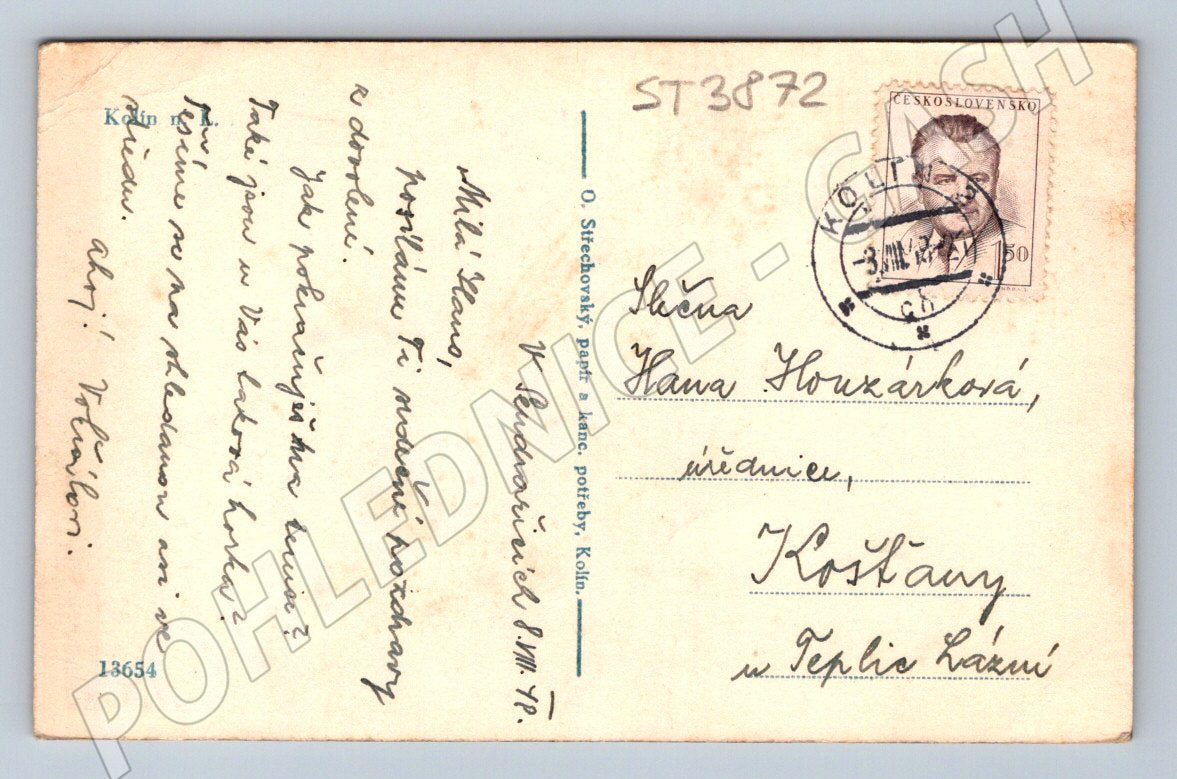 ST3872
ČESKOSLOVENSKO
1.50
KOLÍN 3
-8.VIII.48
ch
Kolín n. L.
13654
O. Střechovský, papír a kanc. potřeby, Kolín.
V Sendražicích 8.VIII.48.
Milá Hano,
posíláme Ti srdečné pozdravy
z dovolené.
Jak pokračuješ na tenise?
Také jsou u Vás taková horka?
Těšíme se na shledanou až ve
středu.
ahoj!
Slečna
Hana Houzárková,
úřednice,
Košťany
u Teplic Lázní
POHLEDNICE - CASH